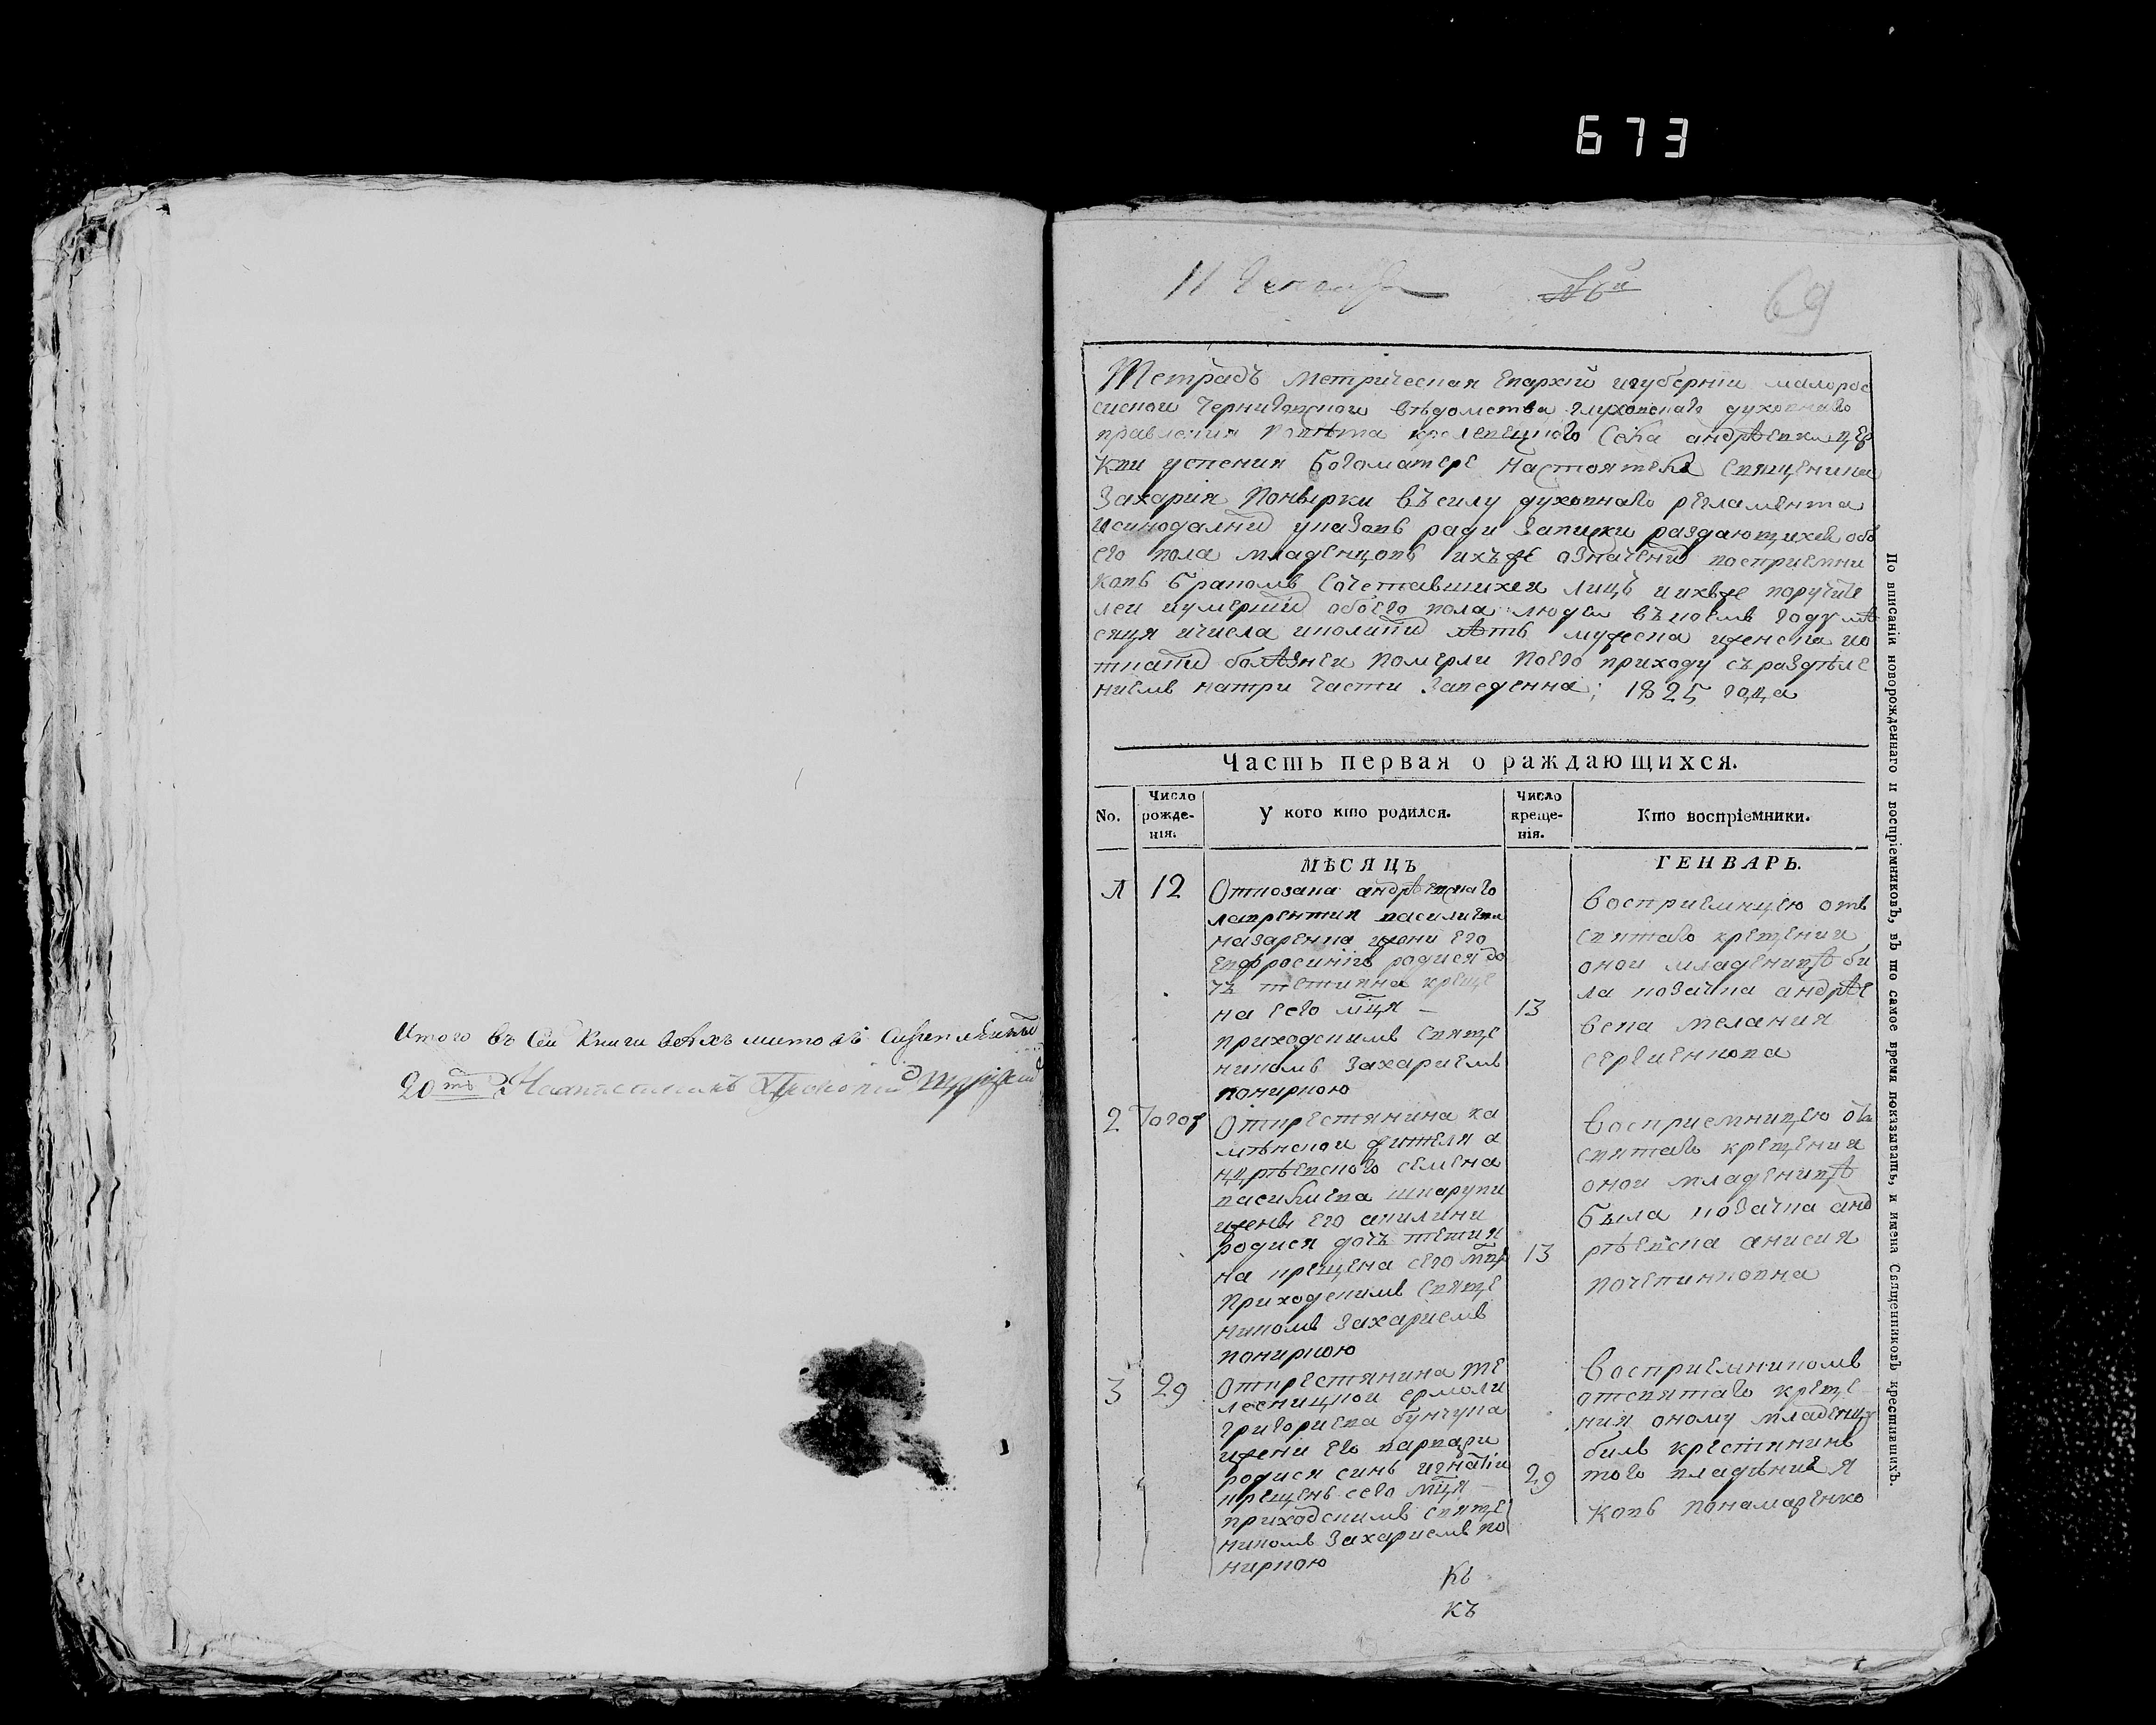 673
69
Итого въ сей книги всѣхъ листовъ
20ть
Тетрадь метрическая Епархіи игуберніи малорос
сискои Черниговскои вѣдомства глуховскаго духовнаго
правления повѣта кролевецкого села андрѣевки цер
кви успения Богоматере настоятеля священника
Захария Понырки въсилу духовнаго регламента
исинодалнихъ указовъ ради записки раздающихся обо
его пола младенцовъ ихъже означених восприемни
ковъ бракомъ сочетавшихся лицъ иихъже поручите
леи иумерших обоего пола людеи въкоемъ году мѣ
сяця ичисла иколикихъ лѣтъ мужеска иженска ио
ткакихъ болѣзнеи померли коего приходу съраздѣле
ниемъ натри части заведенна; 1825 года
Часть первая о раждающихся.
No.
Число рожде-нія.
У кого кто родился.
Число креще-нія.
Кто воспріемники.
МѢСЯЦЪ
ГЕНВАРЬ.
1 12
Откозака андрѣевскаго
лаврентия василиева
назаренка ижени его
евфросиніи родися до
чъ татияна креще
на сего мця –
13
приходскимъ свяще
никомъ Захариемъ
пониркою
восприемницею отъ
святаго крещения
онои младеницѣ би
ла козачка андрѣе
вска мелания
сергиенкова
2 Тогож
Открестянина ка
мѣнскои жителя а
ндрѣевского семена
василиева шкарупи
ижены его акилини
родися дочъ татия
на крещена сего мця
13
приходскимъ свяще
никомъ Захариемъ
пониркою
восприемницею отъ
святаго крещения
онои младеницѣ
была козачка анд
рѣевска анисия
почепинковна
3 29
Открестянина те
лесницкои ермоли
григориева бунчука
ижени его варвари
родися синъ игнатіи
крещенъ сего мця
29
приходскимъ свяще
никомъ Захариемъ по
ниркою
восприемникомъ
отсвятаго креще
ния оному младенцу
билъ крестянинъ
того владѣния я
ковъ понамаренко
Къ
Къ
По вписаніи новорожденнаго и воспріемниковъ, въ то самое время показывать, и имена Священниковъ крестившихъ.